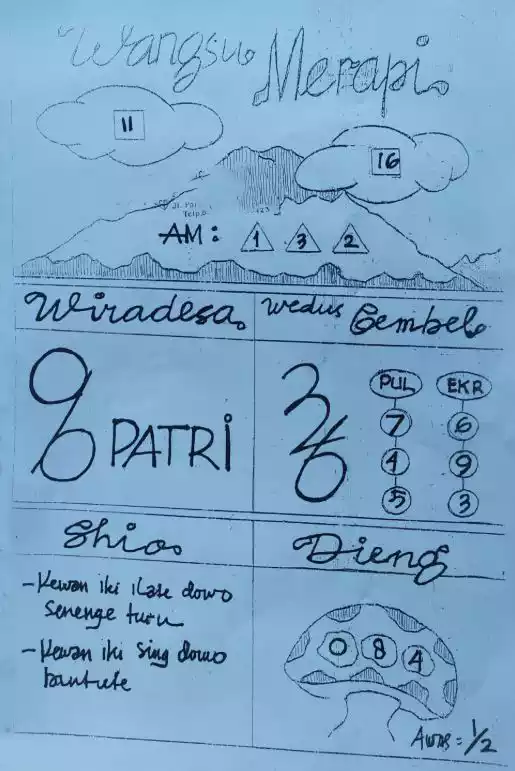 Wangsu Merapi
11
16
AM: 1 3 2
Wiradesa
PATRI
Wedus Gembel
PUL EKR
7 6
4 9
5 3
Shio
- Kewan iki ilate dowo
senenge turu
- Kewan iki sing dowo
buntute
Dieng
0 8 4
Awas = 1/2